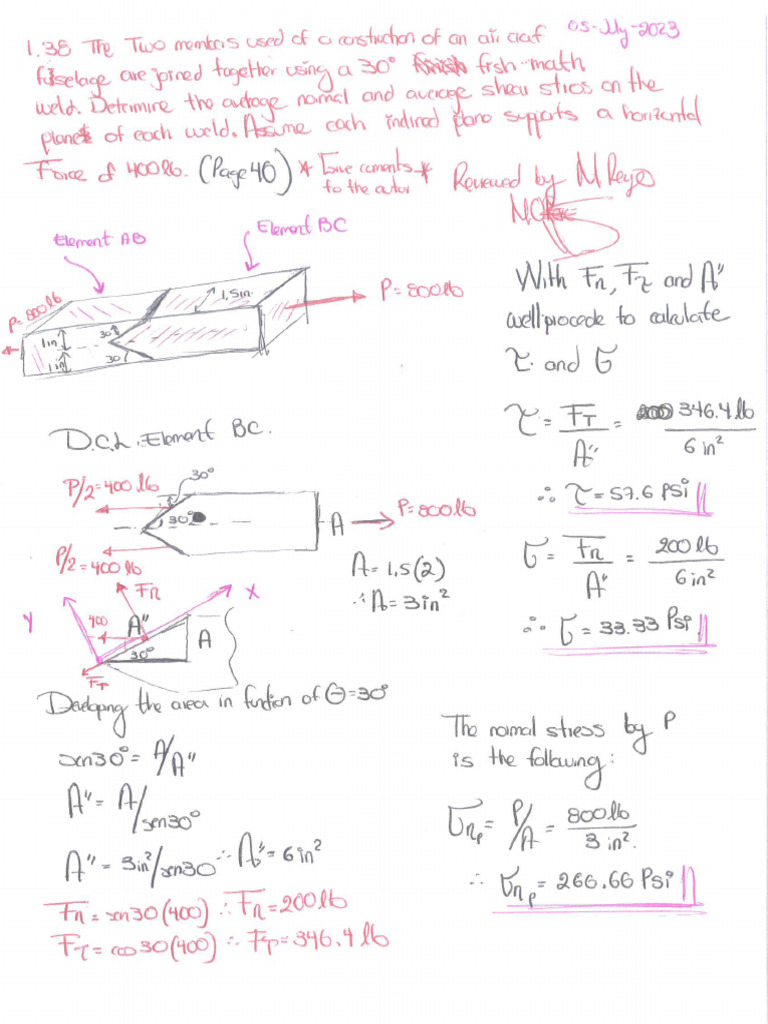 05-My-2023
1.38 The Two members used of a construction of an air craf
fuselage are joined together using a 30° fish-math
weld. Determine the average normal and average shear stress on the
planes of each weld. Assume each inclined plane supports a horizontal
Force of 400 lb. (Page 40) * Give coments *
to the autor
Reviewed by M Reyes
Element AB
Element BC
P=800 lb
1,5in.
P=800 lb
1in
1in
30°
30
With Fn, Fτ and A"
well procede to calculate
τ and σ
τ = FT/A" = 346.4 lb/6 in²
∴ τ = 57.6 Psi
σ = Fn/A" = 200 lb/6 in²
∴ σ = 33.33 Psi
D.C.L. Element BC.
P/2=400 lb
30°
30°
A
P=800 lb
P/2=400 lb
A= 1,5(2)
∴ A= 3in²
Fn
X
Y
400
A"
30°
A
FT
Developing the area in function of θ=30°
sen30° = A/A"
A" = A/sen30°
A" = 3in²/sen30 ∴ A" = 6 in²
Fn = sen30(400) ∴ Fn=200 lb
Fτ = cos30(400) ∴ FT=346.4 lb
The normal stress by P
is the following:
σnp = P/A = 800 lb/3 in².
∴ σnp = 266.66 Psi